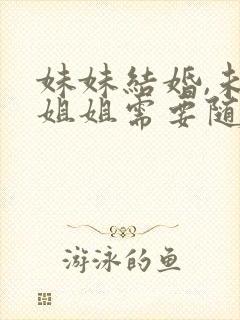 妹妹結婚,未
姐姐需要随
游泳的鱼